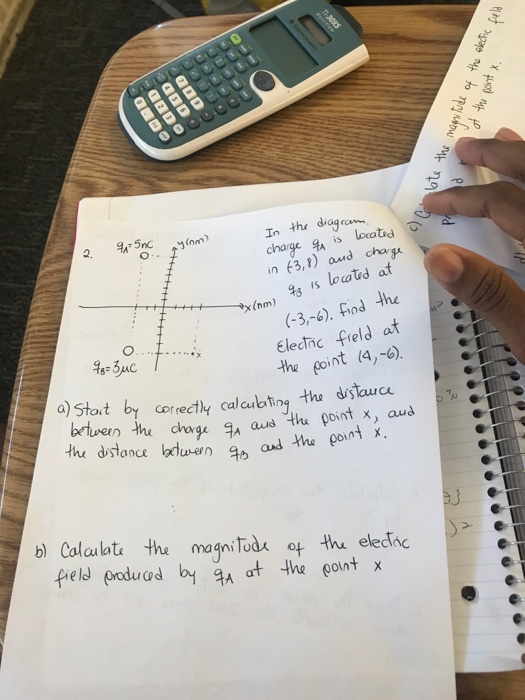 TI-30XS
c) Calculate the magnitude of the electric field
at the point x.
2.
qA=5nC
y(nm)
x(nm)
x
qB=3μC
In the diagram,
charge qA is located
in (-3,8) and charge
qB is located at
(-3,-6). Find the
Electric field at
the point (4,-6).
a) Start by correctly calculating the distance
between the charge qA and the point x, and
the distance between qB and the point x.
b) Calculate the magnitude of the electric
field produced by qA at the point x